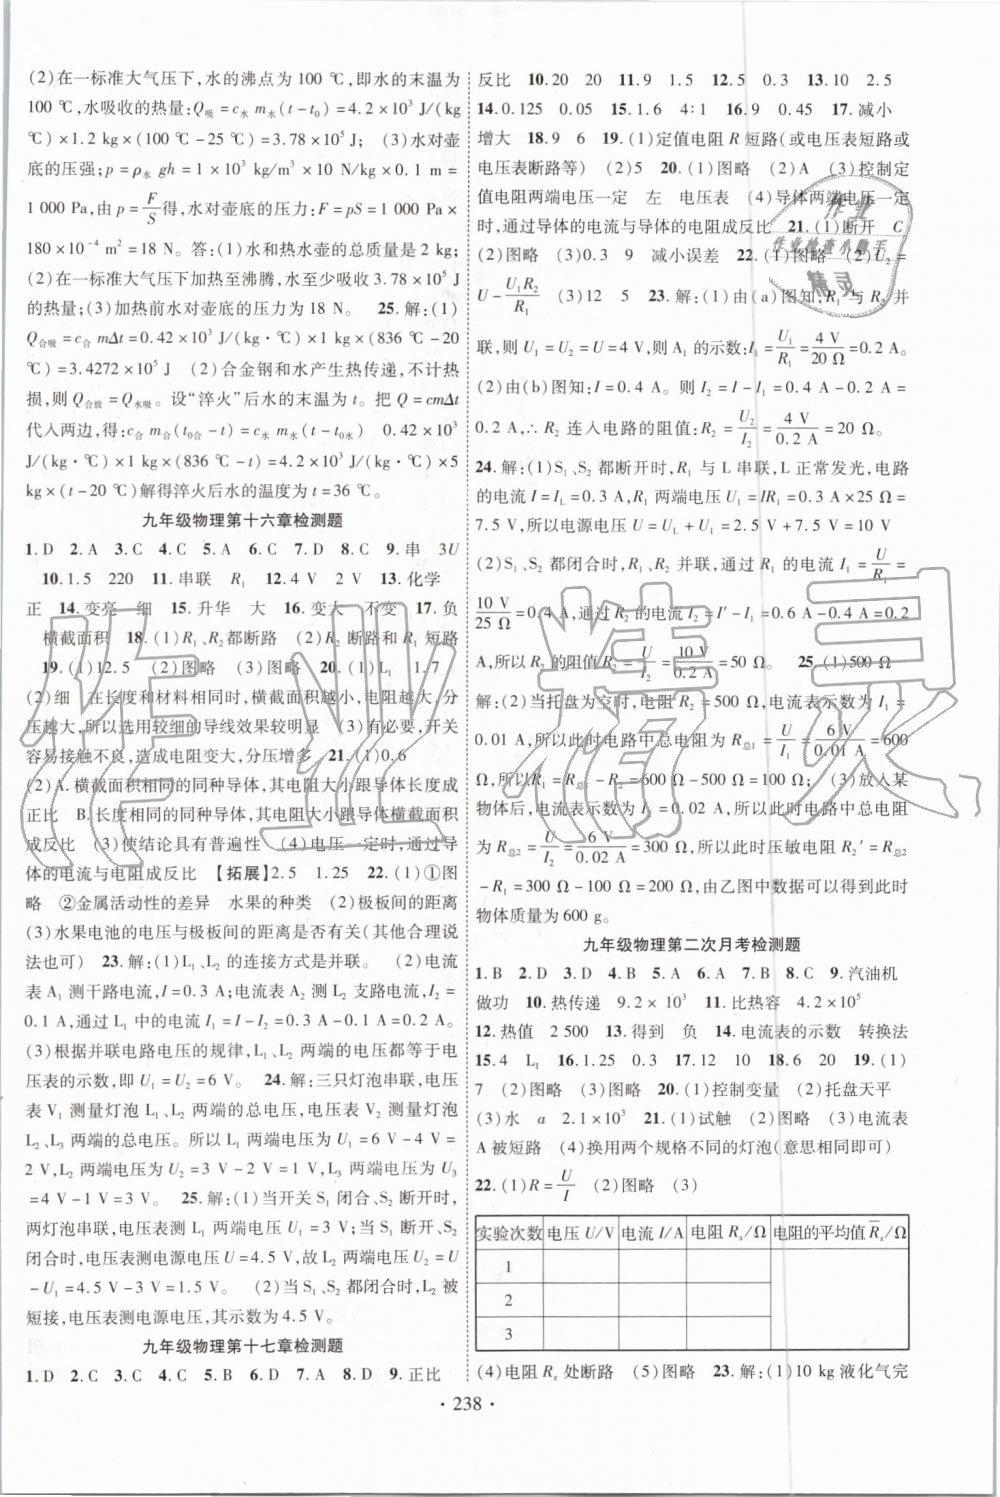 (2)在一标准大气压下,水的沸点为100 ℃,即水的末温为
100 ℃,水吸收的热量:Q吸=c水 m水(t-t₀)=4.2×10³ J/(kg·
℃)×1.2 kg×(100 ℃-25 ℃)=3.78×10⁵ J; (3)水对壶
底的压强:p=ρ水 gh=1×10³ kg/m³×10 N/kg×0.1 m=
1 000 Pa,由 p=F/S得,水对壶底的压力:F=pS=1 000 Pa×
180×10⁻⁴ m²=18 N。答:(1)水和热水壶的总质量是2 kg;
(2)在一标准大气压下加热至沸腾,水至少吸收3.78×10⁵ J
的热量;(3)加热前水对壶底的压力为18 N。 25.解:(1)
Q合吸=c合 mΔt=0.42×10³ J/(kg·℃)×1 kg×(836 ℃-20
℃)=3.4272×10⁵ J (2)合金钢和水产生热传递,不计热
损,则 Q合放=Q水吸。设“淬火”后水的末温为t。把 Q=cmΔt
代入两边,得:c合 m合(t0合-t)=c水 m水(t-t0水) 0.42×10³
J/(kg·℃)×1 kg×(836 ℃-t)=4.2×10³ J/(kg·℃)×5
kg×(t-20 ℃)解得淬火后水的温度为t=36 ℃。
九年级物理第十六章检测题
1.D 2.A 3.C 4.C 5.A 6.C 7.D 8.C 9.串 3U
10.1.5 220 11.串联 R₁ 12.4 V 2 V 13.化学
正 14.变亮 细 15.升华 大 16.变大 不变 17.负
横截面积 18.(1)R₁、R₂都断路 (2)R₂断路和R₁短路
19.(1)12.5 (2)图略 (3)图略 20.(1)L₁ 1.7
(2)细 在长度和材料相同时,横截面积越小,电阻越大,分
压越大,所以选用较细的导线效果较明显 (3)有必要,开关
容易接触不良,造成电阻变大,分压增多 21.(1)0.6
(2)A.横截面积相同的同种导体,其电阻大小跟导体长度成
正比 B.长度相同的同种导体,其电阻大小跟导体横截面积
成反比 (3)使结论具有普遍性 (4)电压一定时,通过导
体的电流与电阻成反比 【拓展】2.5 1.25 22.(1)①图
略 ②金属活动性的差异 水果的种类 (2)极板间的距离
(3)水果电池的电压与极板间的距离有关(其他合理说
法也可) 23.解:(1)L₁、L₂的连接方式是并联。 (2)电流
表A₁测干路电流,I=0.3 A;电流表A₂测L₂支路电流,I₂=
0.1 A,通过L₁中的电流I₁=I-I₂=0.3 A-0.1 A=0.2 A。
(3)根据并联电路电压的规律,L₁、L₂两端的电压都等于电
压表的示数,即U₁=U₂=6 V。 24.解:三只灯泡串联,电压
表V₁测量灯泡L₁和L₂两端的总电压,电压表V₂测量灯泡
L₂、L₃两端的总电压。所以L₁两端的电压为U₁=6 V-4 V=
2 V,L₂两端电压为U₂=3 V-2 V=1 V,L₃两端的电压U₃
=4 V-1 V=3 V。 25.解:(1)当开关S₁闭合、S₂断开时,
两灯泡串联,电压表测L₁两端电压U₁=3 V;当S₁断开、S₂
闭合时,电压表测电源电压U=4.5 V,故L₂两端电压U₂=U
-U₁=4.5 V-3 V=1.5 V。 (2)当S₁、S₂都闭合时,L₂被
短接,电压表测电源电压,其示数为4.5 V。
九年级物理第十七章检测题
1.D 2.C 3.C 4.B 5.D 6.D 7.A 8.D 9.正比
反比 10.20 20 11.9 1.5 12.5 0.3 13.10 2.5
14.0.125 0.05 15.1.6 4∶1 16.9 0.45 17.减小
增大 18.9 6 19.(1)定值电阻R短路(或电压表短路或
电压表断路等) (2)5 20.(1)图略 (2)A (3)控制定
值电阻两端电压一定 左 电压表 (4)导体两端电压一定
时,通过导体的电流与导体的电阻成反比 21.(1)断开 C
(2)图略 (3)0.3 9 减小误差 22.(1)图略 (2)U₂=
U-U₁R₂/R₁ (3)12 5 23.解:(1)由(a)图知,R₁与R₂并
联,则U₁=U₂=U=4 V,则A₁的示数:I₁=U₁/R₁=4 V/20 Ω=0.2 A。
(2)由(b)图知:I=0.4 A。则I₂=I-I₁=0.4 A-0.2 A=
0.2 A,∴R₂连入电路的阻值:R₂=U₂/I₂=4 V/0.2 A=20 Ω。
24.解:(1)S₁、S₂都断开时,R₁与L串联,L正常发光,电路
的电流I=IL=0.3 A,R₁两端电压U₁=IR₁=0.3 A×25 Ω=
7.5 V,所以电源电压U=UL+U₁=2.5 V+7.5 V=10 V
(2)S₁、S₂都闭合时,R₁、R₂并联,通过R₁的电流I₁=U/R₁=
10 V/25 Ω=0.4 A,通过R₂的电流I₂=I′-I₁=0.6 A-0.4 A=0.2
A,所以R₂的阻值R₂=U/I₂=10 V/0.2 A=50 Ω。 25.(1)500 Ω
解:(2)当托盘为空时,电阻R₂=500 Ω,电流表示数为I₁=
0.01 A,所以此时电路中总电阻为R总1=U/I₁=6 V/0.01 A=600
Ω,所以R₁=R总1-R₂=600 Ω-500 Ω=100 Ω; (3)放入某
物体后,电流表示数为I₂=0.02 A,所以此时电路中总电阻
为R总2=U/I₂=6 V/0.02 A=300 Ω,所以此时压敏电阻R₂′=R总2
-R₁=300 Ω-100 Ω=200 Ω,由乙图中数据可以得到此时
物体质量为600 g。
九年级物理第二次月考检测题
1.B 2.D 3.D 4.A 5.D 6.B 7.B 8.C 9.汽油机
做功 10.热传递 9.2×10³ 11.比热容 4.2×10⁵
12.热值 2 500 13.得到 负 14.电流表的示数 转换法
15.4 L₁ 16.1.25 0.3 17.12 10 18.6 20 19.(1)
7 (2)图略 (3)图略 20.(1)控制变量 (2)托盘天平
(3)水 a 2.1×10³ 21.(1)试触 (2)图略 (3)电流表
A被短路 (4)换用两个规格不同的灯泡(意思相同即可)
22.(1)R=U/I (2)图略 (3)
实验次数 电压U/V 电流I/A 电阻Rₓ/Ω 电阻的平均值R̄ₓ/Ω
1
2
3
(4)电阻Rₓ处断路 (5)图略 23.解:(1)10 kg液化气完
·238·
作业
作业检查小助手
精灵
作业精灵